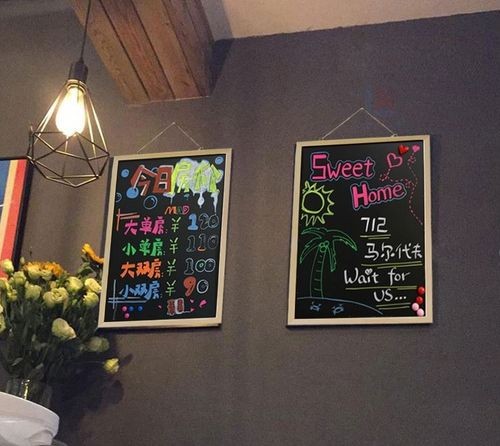 今日房价
大单房:¥120
小单房:¥110
大双房:¥100
小双房:¥90
Sweet
Home
712
马尔代夫
Wait for
US...